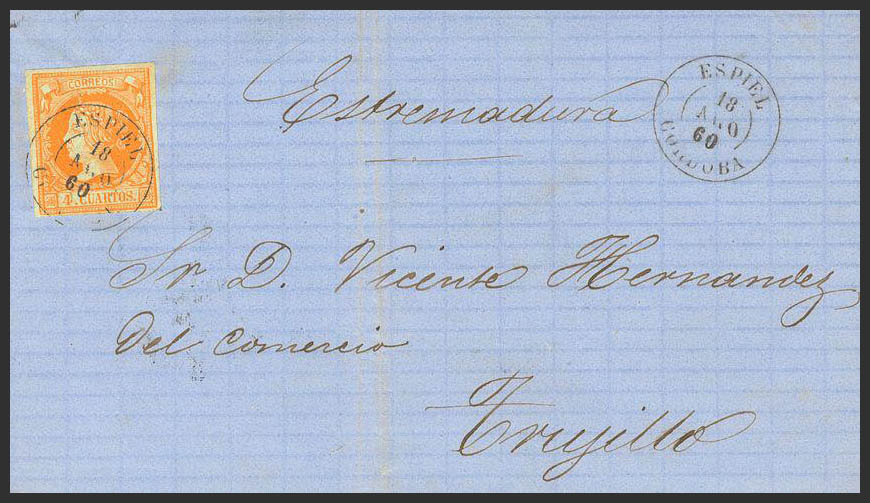 CORREOS
4 CUARTOS.
ESPIEL
18
AGO
60
Estremadura
ESPIEL
18
AGO
60
CORDOBA
Sr D. Vicente Hernandez
Del Comercio
Trujillo